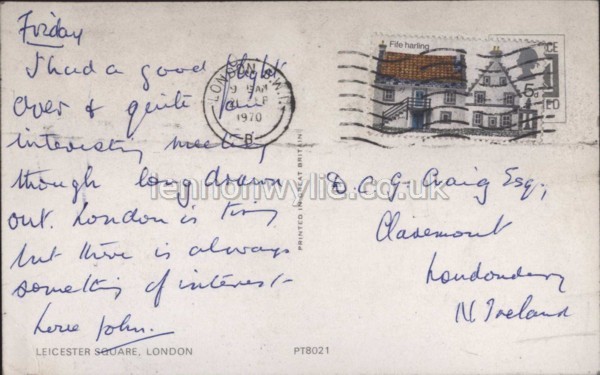 Friday
I had a good flight
over & quite an
interesting meeting
though long drawn
out. London is tiring
but there is always
something of interest
Love John.
LEICESTER SQUARE, LONDON
PT8021
PRINTED IN GREAT BRITAIN
LONDON S.W.1
9 AM
SEP
1970
B
Fife harling
5d
lennonwylie.co.uk
D. C. G. Craig Esq.,
Claremont
Londonderry
N. Ireland